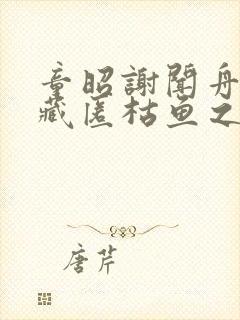 章昭謝聞舟
藏匿枯鱼之
唐芹